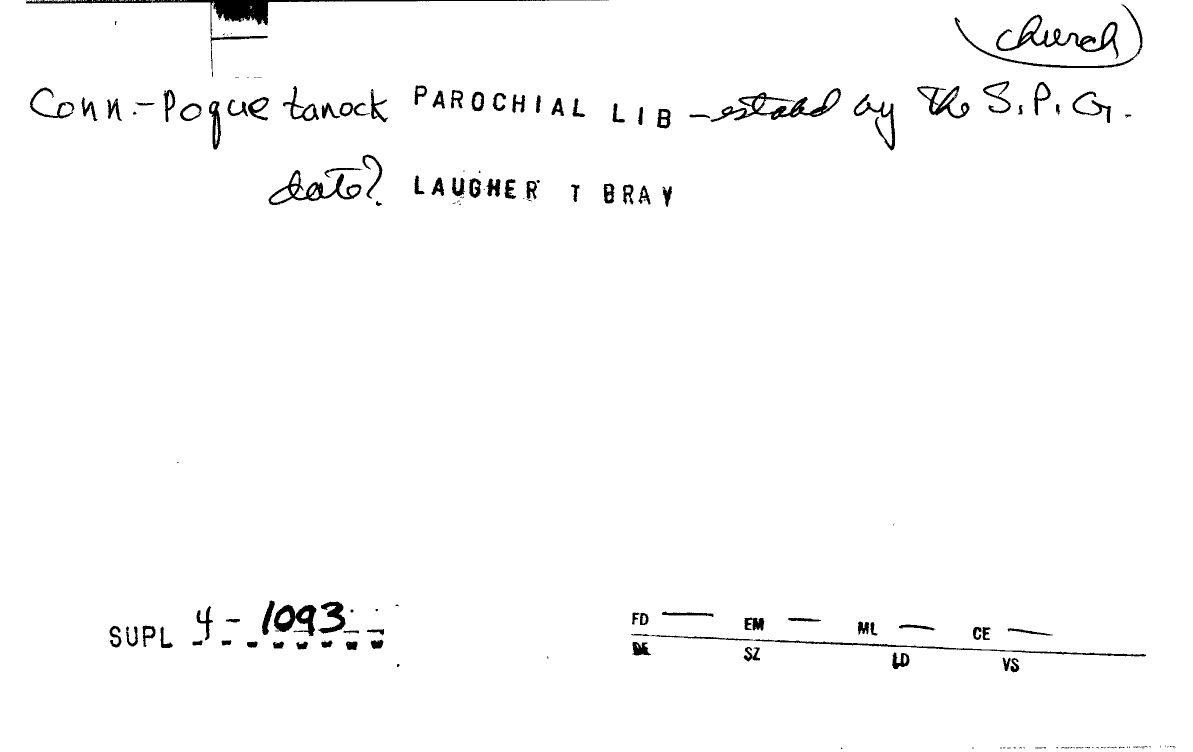 church
Conn.-Poquetanock PAROCHIAL LIB - estabd by the S.P.G.
date? LAUGHER T BRAY
SUPL 4-1093
FD — EM — ML — CE —
DE SZ LD VS